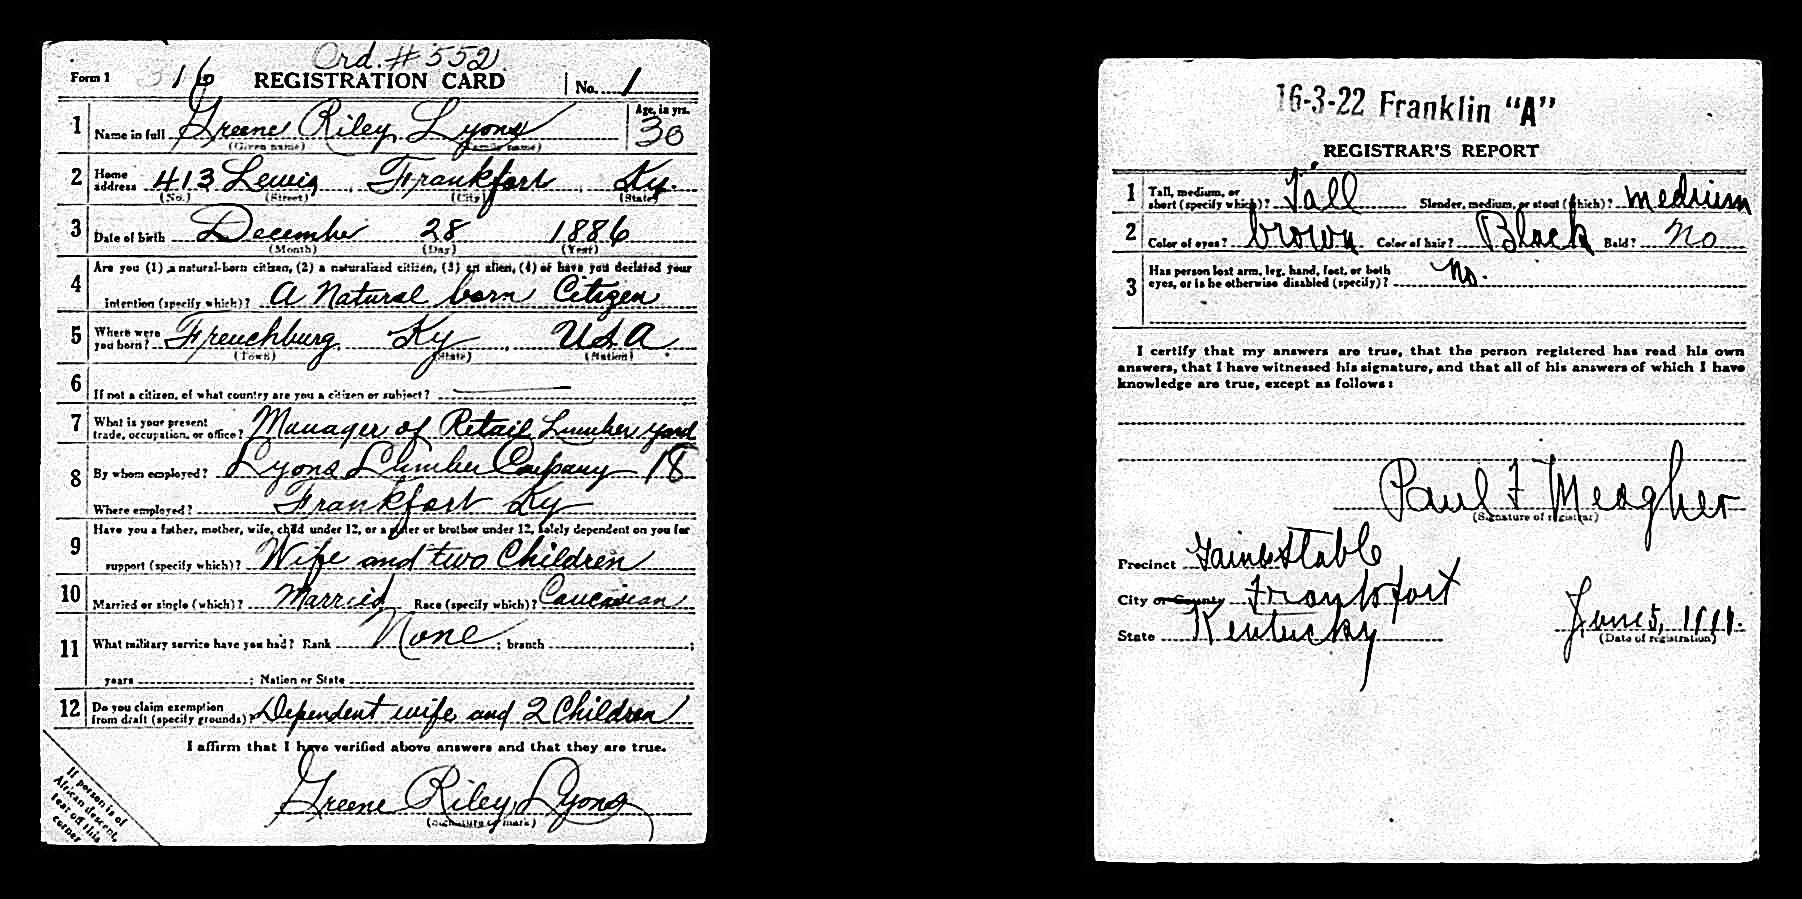 Ord. # 552
Form 1 316 REGISTRATION CARD No. 1
1 Name in full Greene Riley Lyons Age, in yrs. 30
(Given name) (Family name)
2 Home address 413 Lewis, Frankfort Ky.
(No.) (Street) (City) (State)
3 Date of birth December 28 1886
(Month) (Day) (Year)
4 Are you (1) a natural-born citizen, (2) a naturalized citizen, (3) an alien, (4) or have you declared your
intention (specify which)? A Natural born Citizen
5 Where were you born? Frenchburg Ky, USA
(Town) (State) (Nation)
6 If not a citizen, of what country are you a citizen or subject?
7 What is your present trade, occupation, or office? Manager of Retail Lumber yard
8 By whom employed? Lyons Lumber Company 18
Where employed? Frankfort Ky
9 Have you a father, mother, wife, child under 12, or a sister or brother under 12, solely dependent on you for
support (specify which)? Wife and two Children
10 Married or single (which)? Married Race (specify which)? Caucasian
11 What military service have you had? Rank None ; branch ;
years ; Nation or State
12 Do you claim exemption from draft (specify grounds)? Dependent wife and 2 Children
I affirm that I have verified above answers and that they are true.
Greene Riley Lyons
(Signature or mark)
If person is of
African descent,
tear off this
corner
16-3-22 Franklin "A"
REGISTRAR'S REPORT
1 Tall, medium, or short (specify which)? Tall Slender, medium, or stout (which)? medium
2 Color of eyes? brown Color of hair? Black Bald? No
3 Has person lost arm, leg, hand, foot, or both
eyes, or is he otherwise disabled (specify)? No.
I certify that my answers are true, that the person registered has read his own
answers, that I have witnessed his signature, and that all of his answers of which I have
knowledge are true, except as follows:
Paul F Meagher
(Signature of registrar)
Precinct Stable
City or County Frankfort
State Kentucky June 5, 1917.
(Date of registration)